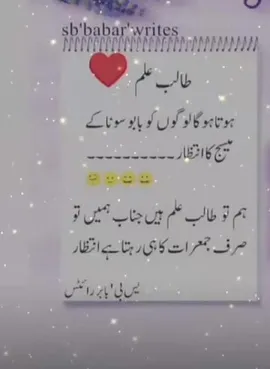 sb'babar'writes
طالب علم
ہوتا ہوگا لوگوں کو بابو سونا کے
میسج کا انتظار----------
ہم تو طالب علم ہیں جناب ہمیں تو
صرف جمعرات کا ہی رہتا ہے انتظار
یس بی'بابر رائٹس